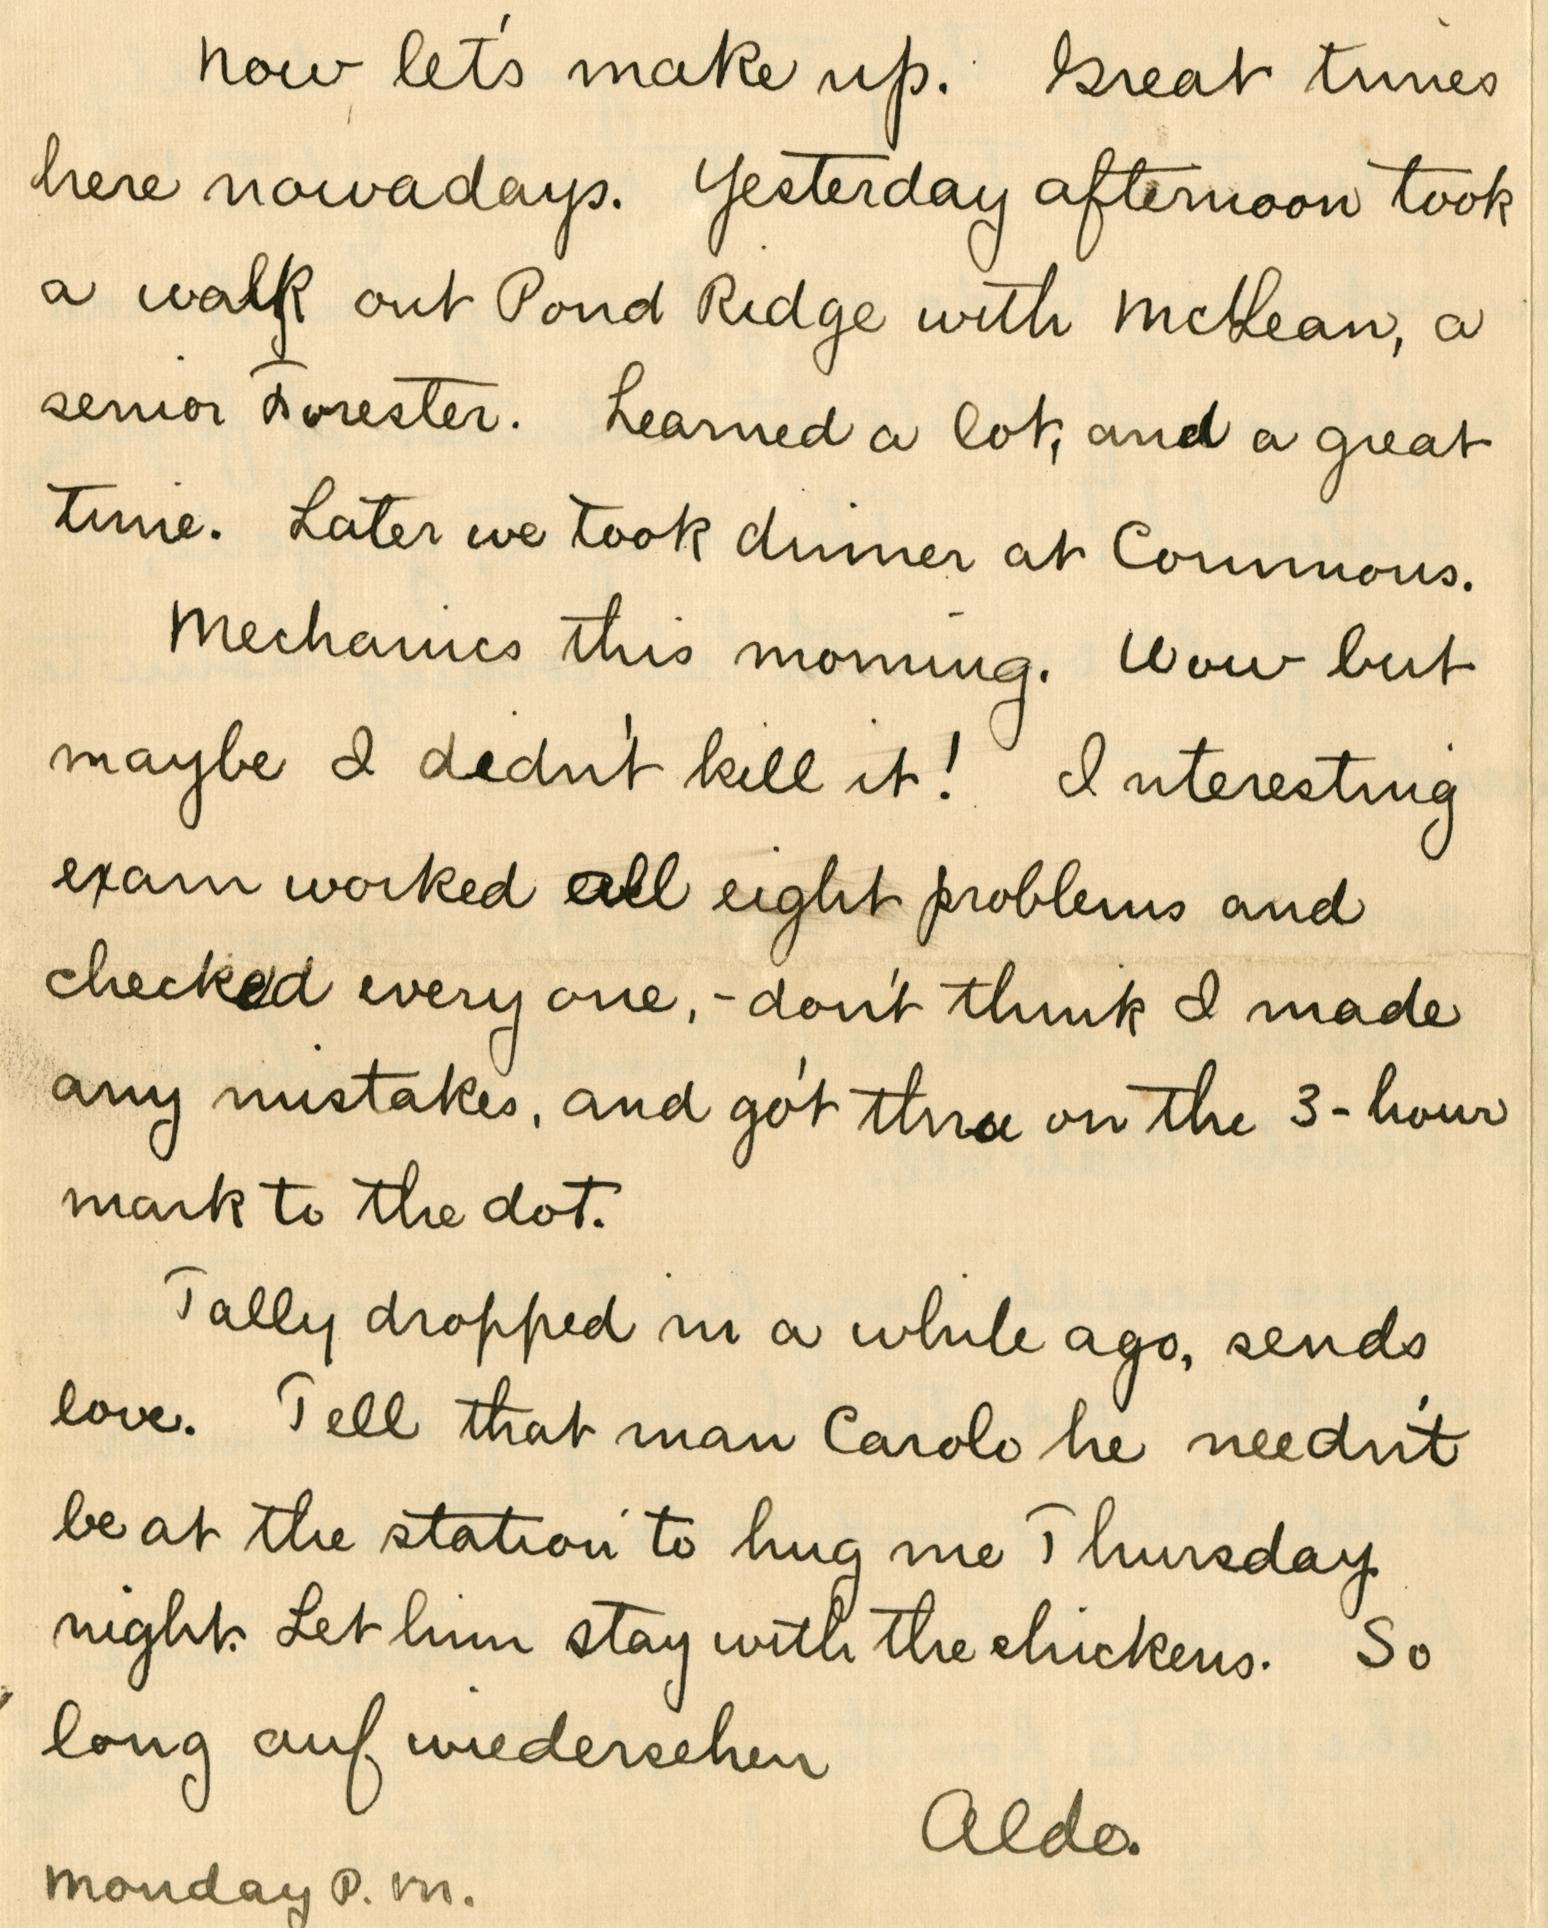 Now let's make up. Great times
here nowadays. Yesterday afternoon took
a walk out Pond Ridge with McLean, a
senior Forester. Learned a lot, and a great
time. Later we took dinner at Commons.
Mechanics this morning. Wow but
maybe I didn't kill it! Interesting
exam worked all eight problems and
checked every one, - don't think I made
any mistakes, and got thru on the 3-hour
mark to the dot.
Tally dropped in a while ago, sends
love. Tell that man Carolo he needn't
be at the station to hug me Thursday
night. Let him stay with the chickens. So
long auf wiedersehen
Aldo.
Monday P.M.